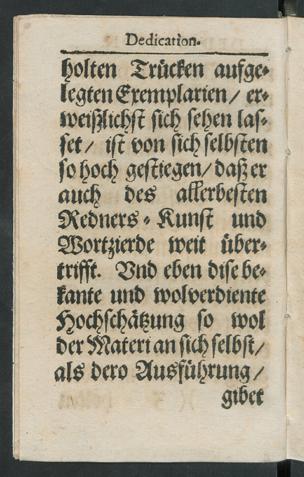 Dedication.
holten Trücken aufge-
legten Exemplarien / er-
weißlichst sich sehen las-
set / ist von sich selbsten
so hoch gestiegen / daß er
auch des allerbesten
Redners-Kunst und
Wortzierde weit über-
trifft. Vnd eben dise be-
kante und wolverdiente
Hochschätzung so wol
der Materi an sich selbst /
als dero Ausführung /
gibet